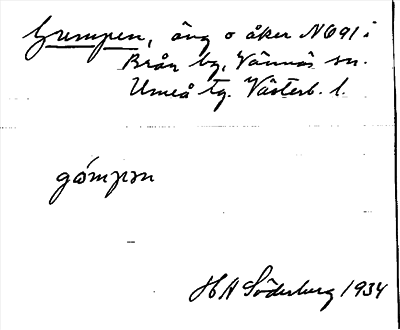 Grumpen, äng o åker N691 i
Brån by, Vännäs sn.
Umeå tg. Västerb. l.
gómpən
H A Söderberg 1934